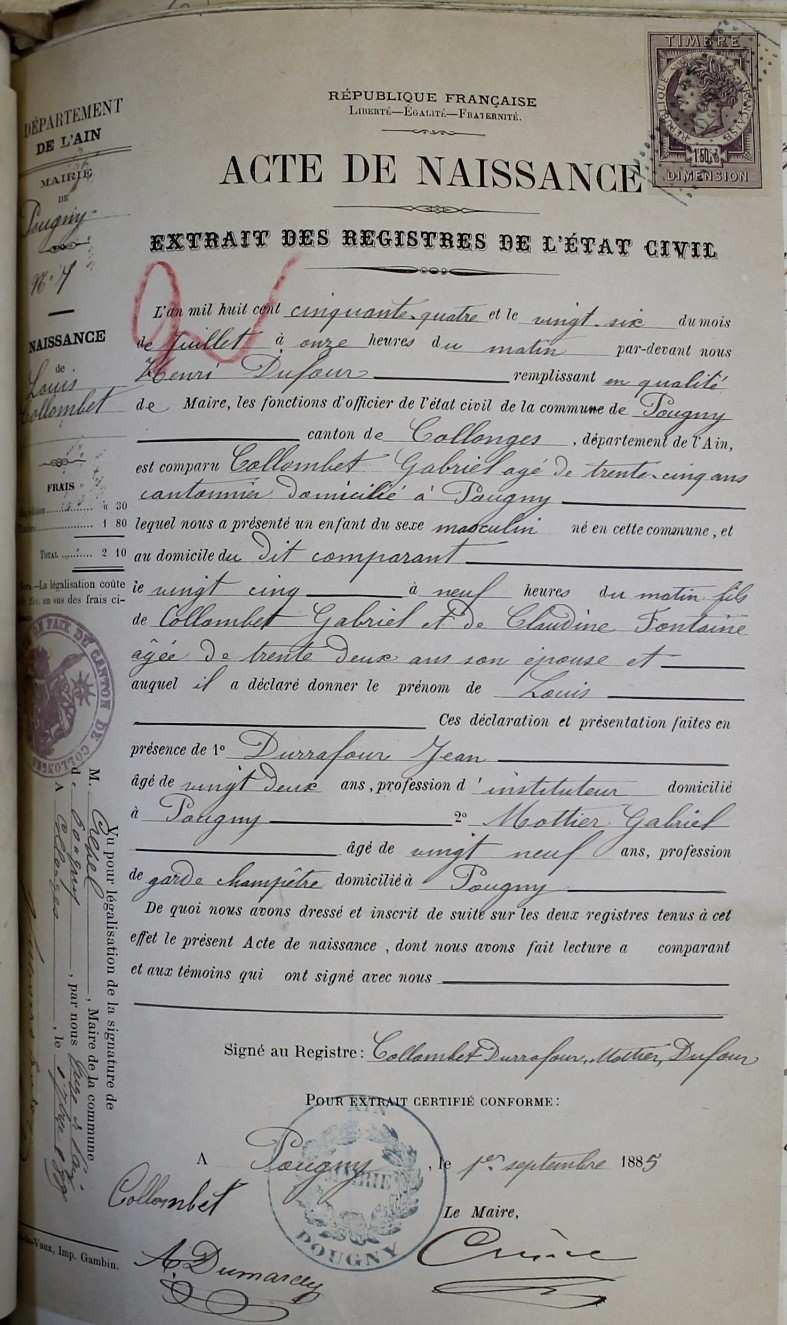 RÉPUBLIQUE FRANÇAISE
LIBERTÉ—ÉGALITÉ—FRATERNITÉ.
TIMBRE
RÉPUBLIQUE FRANÇAISE
1f50c
DIMENSION
ACTE DE NAISSANCE
EXTRAIT DES REGISTRES DE L'ÉTAT CIVIL
DÉPARTEMENT
DE L'AIN
MAIRIE
DE
Pougny
N° 7
NAISSANCE
de
Louis
Collombet
FRAIS
30
1 80
TOTAL 2 10
—La légalisation coûte
en sus des frais ci-
L'an mil huit cent cinquante-quatre et le vingt-six du mois
de Juillet à onze heures du matin par-devant nous
Henri Dufour remplissant en qualité
de Maire, les fonctions d'officier de l'état civil de la commune de Pougny
canton de Collonges, département de l'Ain,
est comparu Collombet Gabriel agé de trente-cinq ans
cantonnier domicilié à Pougny
lequel nous a présenté un enfant du sexe masculin né en cette commune, et
au domicile du dit comparant
le vingt cinq à neuf heures du matin fils
de Collombet Gabriel et de Claudine Fontaine
âgée de trente deux ans son épouse et
auquel il a déclaré donner le prénom de Louis
Ces déclaration et présentation faites en
présence de 1° Durrafour Jean
âgé de vingt deux ans, profession d'instituteur domicilié
à Pougny 2° Mottier Gabriel
âgé de vingt neuf ans, profession
de garde champêtre domicilié à Pougny
De quoi nous avons dressé et inscrit de suite sur les deux registres tenus à cet
effet le présent Acte de naissance, dont nous avons fait lecture a comparant
et aux témoins qui ont signé avec nous
Signé au Registre: Collombet Durrafour, Mottier, Dufour
POUR EXTRAIT CERTIFIÉ CONFORME:
A Pougny, le 1er septembre 1885
Le Maire,
Collombet
A Dumarey
AIN
MAIRIE
POUGNY
PAIX DU CANTON DE COLLONGES
Vu pour légalisation de la signature de
M. , Maire de la commune
d Pougny, par nous
A Collonges, le
Vaux, Imp. Gambin.